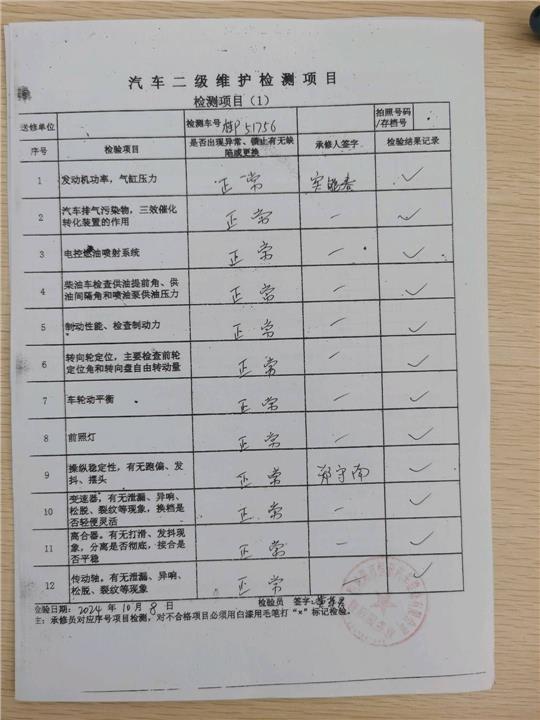 汽车二级维护检测项目
检测项目(1)
送修单位 检测车号 51756 拍照号码/存档号
序号 检验项目 是否出现异常、锁止有无缺陷或更换 承修人签字 检验结果记录
1 发动机功率，气缸压力 正常 ✓
2 汽车排气污染物，三效催化 正常 — ✓
转化装置的作用
3 电控燃油喷射系统 正常 — ✓
4 柴油车检查供油提前角、供 正常 — ✓
油间隔角和喷油泵供油压力
5 制动性能、检查制动力 正常 — ✓
6 转向轮定位，主要检查前轮 正常 — ✓
定位角和转向盘自由转动量
7 车轮动平衡 正常 — ✓
8 前照灯 正常 — ✓
9 操纵稳定性，有无跑偏、发 正常 郑守南 ✓
抖、摆头
10 变速器，有无泄漏、异响、 正常 — ✓
松脱、裂纹等现象，换档是
否轻便灵活
11 离合器，有无打滑、发抖现 正常 — ✓
象，分离是否彻底，接合是
否平稳
12 传动轴，有无泄漏、异响、 正常 ✓
松脱、裂纹等现象
检验日期：2024年10月8日 检验员 签字：
主：承修员对应序号项目检测，对不合格项目必须用白漆用毛笔打“×”标记检修。